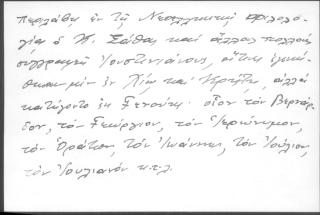 Περιλάβῃ ἐν τῇ Νεοελληνικῇ Φιλολο-
γίᾳ ὁ Κ. Σάθας καὶ ἄλλους πολλοὺς
συγγραφεῖς Ἰουστινιάνους, οἵτινες
μὲν ἐν Χίῳ καὶ Κρήτῃ, ἀλλὰ
κατήγοντο ἐκ Γενούης· οἷον τὸν Βερνάρ-
δον, τὸν Γεώργιον, τὸν Ἱερώνυμον,
τὸν Ὁράτιον, τὸν Ἰωάννην, τὸν Ἰούλιον,
τὸν Ἰουλιανὸν κ.τ.λ.